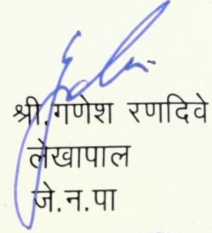 श्री.गणेश रणदिवे
लेखापाल
जे.न.पा